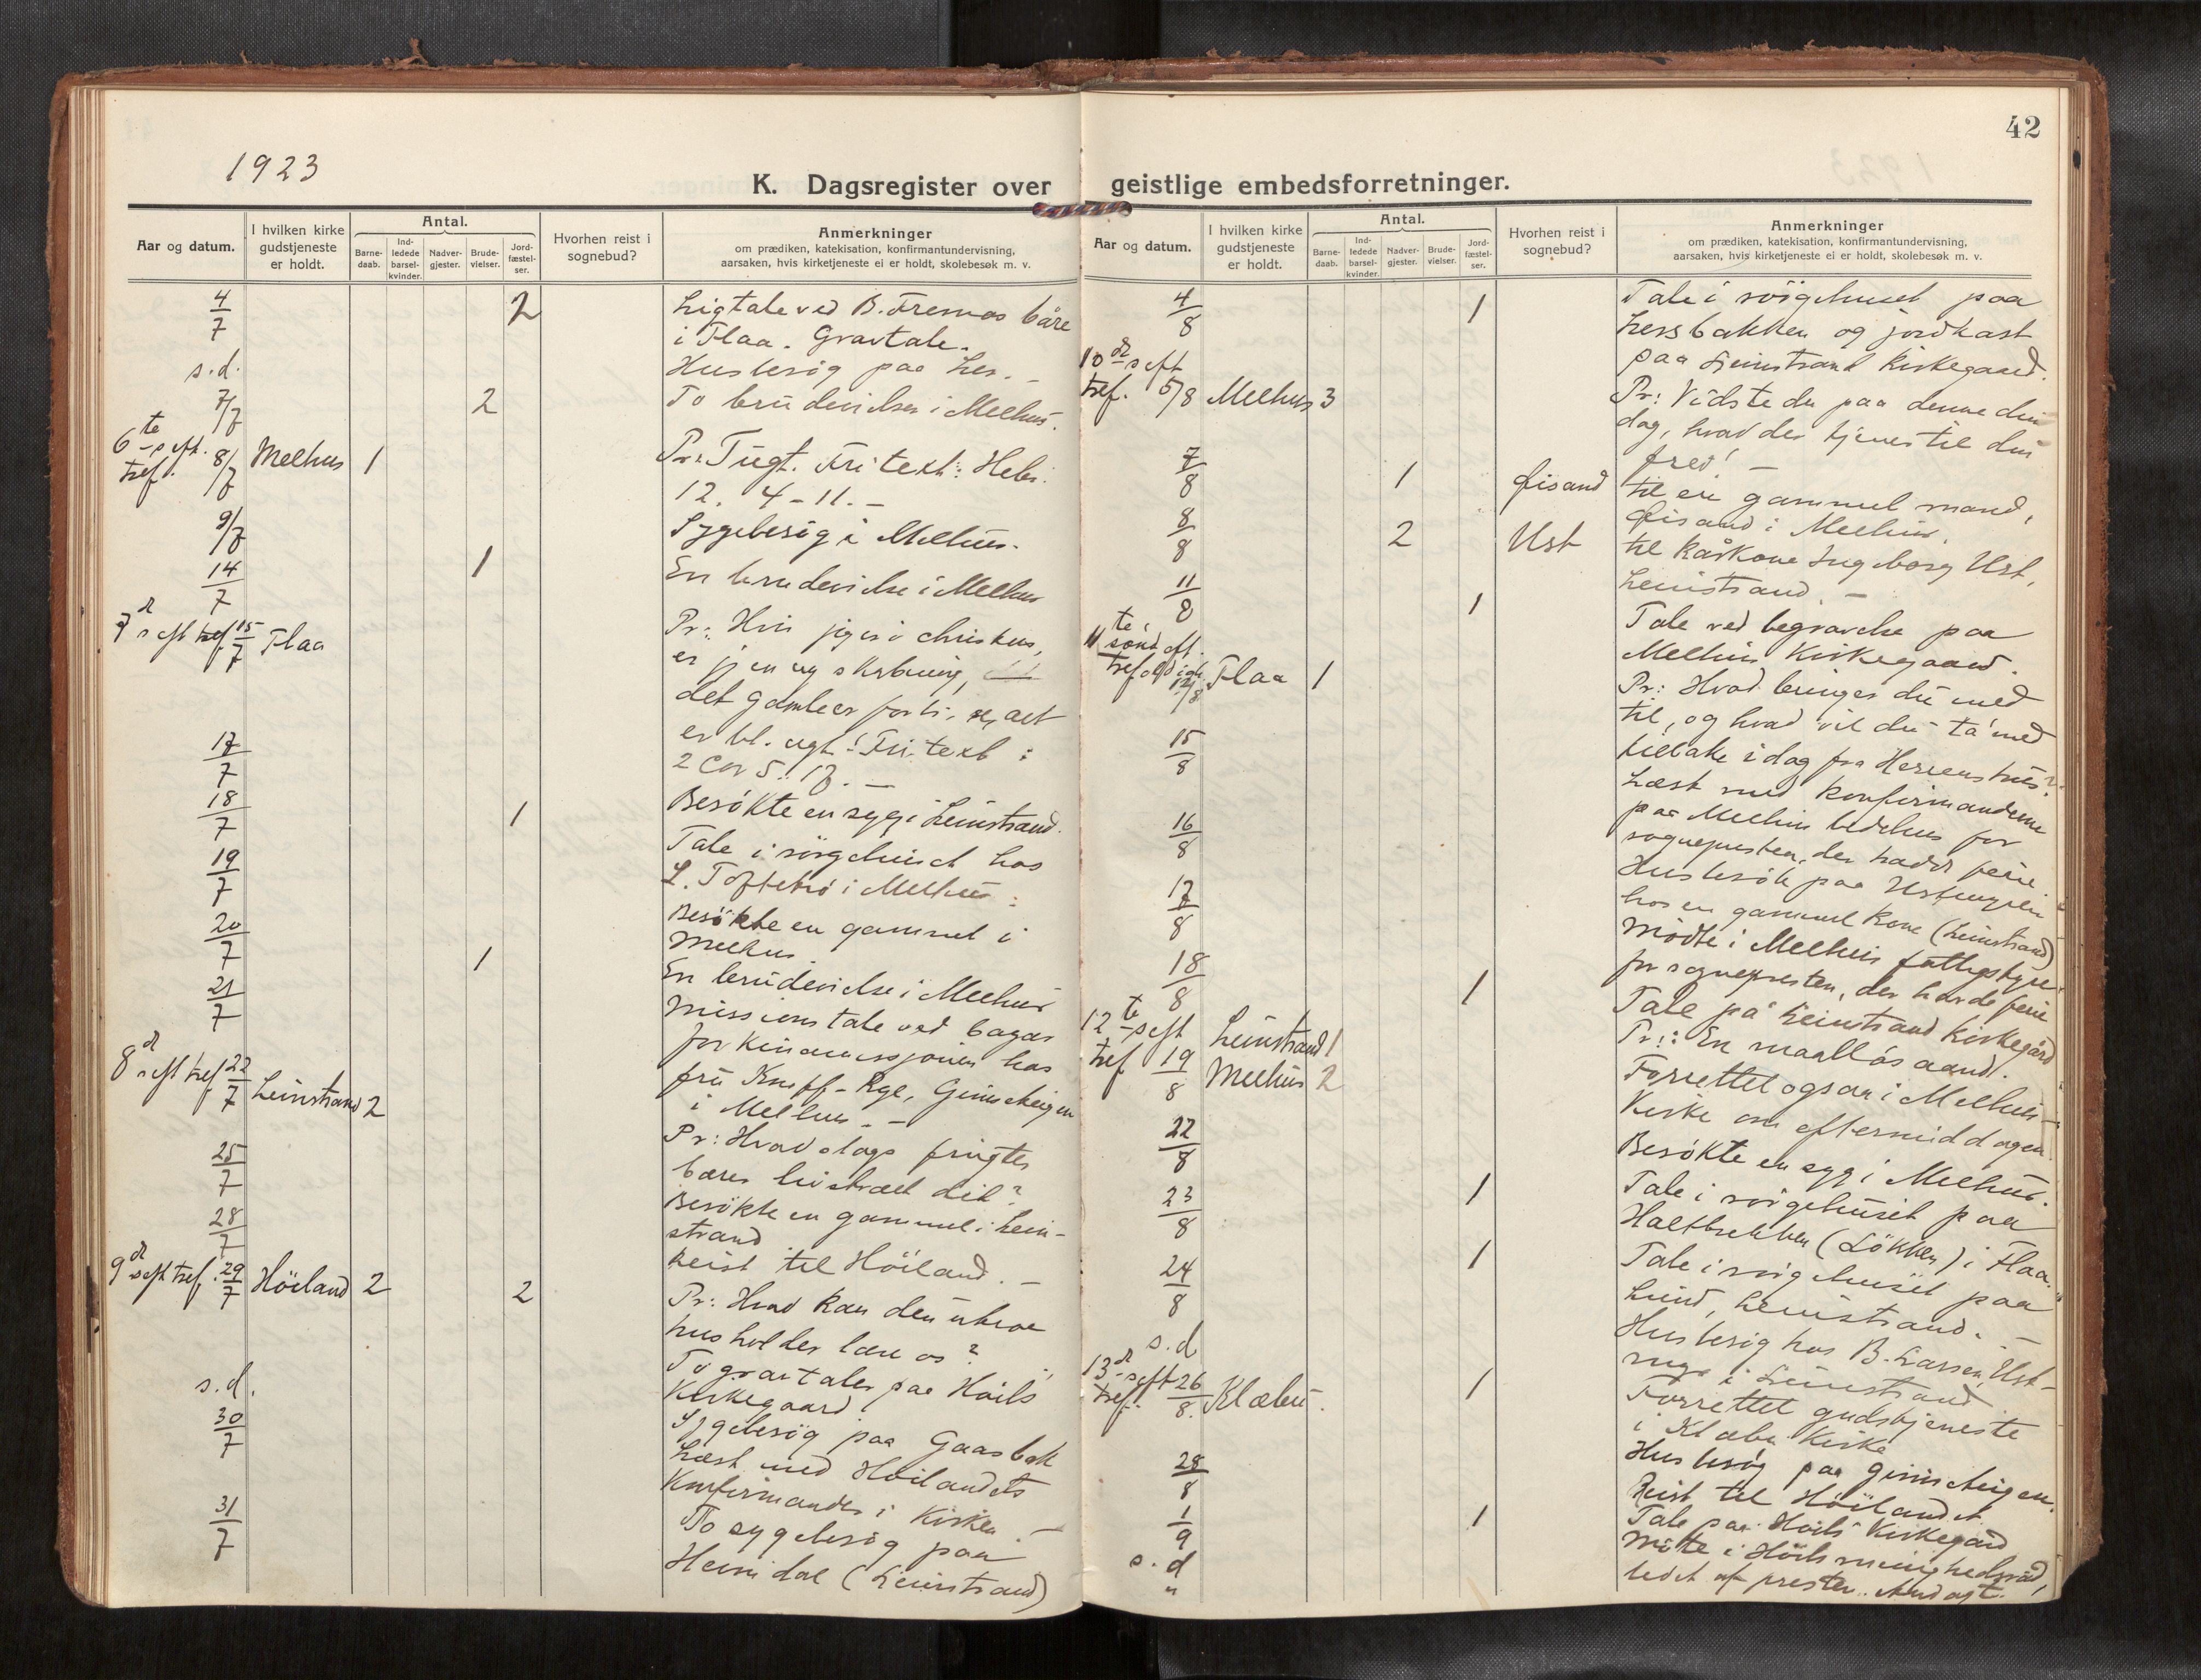 42
1923
K. Dagsregister over geistlige embedsforretninger.
Aar og datum.
I hvilken kirke gudstjeneste er holdt.
Antal.
Barnedaab.
Indledede barselkvinder.
Nadvergjester.
Brudevielser.
Jordfæstelser.
Hvorhen reist i sognebud?
Anmerkninger
om prædiken, katekisation, konfirmantundervisning,
aarsaken, hvis kirketjeneste ei er holdt, skolebesøk m. v.
4/7 2 Ligtale ved B. Fremos båre
i Flaa. Gravtale.
s.d. Husbesøg paa Ler. –
7/7 2 To brudevielser i Melhus.
6te s. eft. tref. 8/7 Melhus 1 Pr: Tugt. Fri text: Hebr.
12. 4-11. –
9/7 Sygebesøg i Melhus.
14/7 1 En brudevielse i Melhus
7d s eft tref 15/7 Flaa Pr: Hvis jeg er i Christus,
er jeg en ny skabning,
det gamle er forbi, se, alt
er bl. nyt! Fri text:
2 Cor 5. 17. –
17/7 Besökte en syg i Leinstrand.
18/7 1 Tale i sörgehuset hos
L. Toftebrö i Melhus.
19/7 Besökte en gammel i
Melhus.
20/7 1 En brudevielse i Melhus
21/7 Missionstale ved bagar
for Kinamissjonen hos
fru Knipf-Rye, Gimseheigen
i Melhus. –
8d s eft tref 22/7 Leinstrand 2 Pr: Hvad slags frugter
bærer livstræet dit?
25/7 Besökte en gammel i Lein-
strand
28/7 Reist til Höiland. –
9d s eft tref. 29/7 Höiland 2 2 Pr: Hvad kan den utro
husholder lære os?
To gravtaler paa Höils
Kirkegaard.
s.d. Sygebesög paa Gaasbak
30/7 Læst med Höilandets
Konfirmander i Kirken. –
31/7 To sygebesög paa
Heimdal (Leinstrand)
Aar og datum.
I hvilken kirke gudstjeneste er holdt.
Antal.
Barnedaab.
Indledede barselkvinder.
Nadvergjester.
Brudevielser.
Jordfæstelser.
Hvorhen reist i sognebud?
Anmerkninger
om prædiken, katekisation, konfirmantundervisning,
aarsaken, hvis kirketjeneste ei er holdt, skolebesøk m. v.
4/8 1 Tale i sörgehuset paa
Lersbakken og jordkast
paa Leinstrand Kirkegaard.
10de s eft tref. 5/8 Melhus 3 Pr: Vidste du paa denne din
dag, hvad der tjener til din
fred! –
7/8 1 Øisand til en gammel mand,
Øisand i Melhus.
8/8 2 Ust til kårkone Ingeborg Ust,
Leinstrand. –
11/8 1 Tale ved begravelse paa
Melhus Kirkegaard.
11te sönd eft. tref 12/8 Flaa 1 Pr: Hvad bringer du med
til, og hvad vil du ta' med
tilbake idag fra Herrens hus?
15/8 Læst med konfirmanderne
paa Melhus bedehus for
sognepresten, der hadde ferie.
16/8 Husbesök paa Ustmyren
hos en gammel kone (Leinstrand)
17/8 Mödte i Melhus fattigstyre
for sognepresten, der havde ferie
18/8 1 Tale på Leinstrand Kirkegård
12te s eft tref 19/8 Leinstrand 1 Pr: En maallös aand.
Melhus 2 Forrettet ogsaa i Melhus
Kirke om eftermiddagen.
22/8 Besökte en syg i Melhus.
23/8 1 Tale i sörgehuset paa
Haltbrekken (Lökken) i Flaa.
24/8 1 Tale i sörgehuset paa
Lund, Leinstrand. –
s.d Husbesög hos B. Larsen, Ust-
myr i Leinstrand
13d s eft tref. 26/8. Klæbu. 1 Forrettet gudstjeneste
i Klæbu Kirke
28/8 Husbesög paa Gimseheigen.
Reist til Höilandet
1/9 1 Tale paa Höils Kirkegård
s.d Möte i Höils menighedsråd,
" ledet af presten. Andagt.